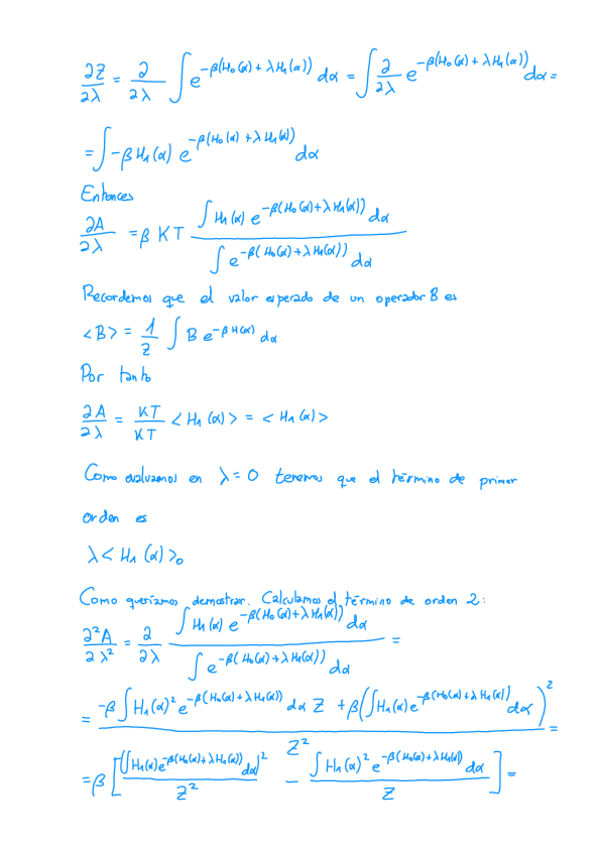 ∂Z/∂λ = ∂/∂λ ∫ e^{-β(H₀(α) + λH₁(α))} dα = ∫ ∂/∂λ e^{-β(H₀(α) + λH₁(α))} dα =
= ∫ -βH₁(α) e^{-β(H₀(α) + λH₁(α))} dα
Entonces
∂A/∂λ = β KT (∫ H₁(α) e^{-β(H₀(α)+λH₁(α))} dα) / (∫ e^{-β(H₀(α)+λH₁(α))} dα)
Recordemos que el valor esperado de un operador B es
<B> = 1/Z ∫ B e^{-βH(α)} dα
Por tanto
∂A/∂λ = KT/KT <H₁(α)> = <H₁(α)>
Como evaluamos en λ=0 tenemos que el término de primer
orden es
λ<H₁(α)>₀
Como queríamos demostrar. Calculamos el término de orden 2:
∂²A/∂λ² = ∂/∂λ (∫ H₁(α) e^{-β(H₀(α)+λH₁(α))} dα) / (∫ e^{-β(H₀(α)+λH₁(α))} dα) =
= (-β ∫ H₁(α)² e^{-β(H₀(α)+λH₁(α))} dα Z + β(∫ H₁(α) e^{-β(H₀(α)+λH₁(α))} dα)²) / Z² =
= β [(∫ H₁(α) e^{-β(H₀(α)+λH₁(α))} dα)² / Z² - (∫ H₁(α)² e^{-β(H₀(α)+λH₁(α))} dα) / Z] =